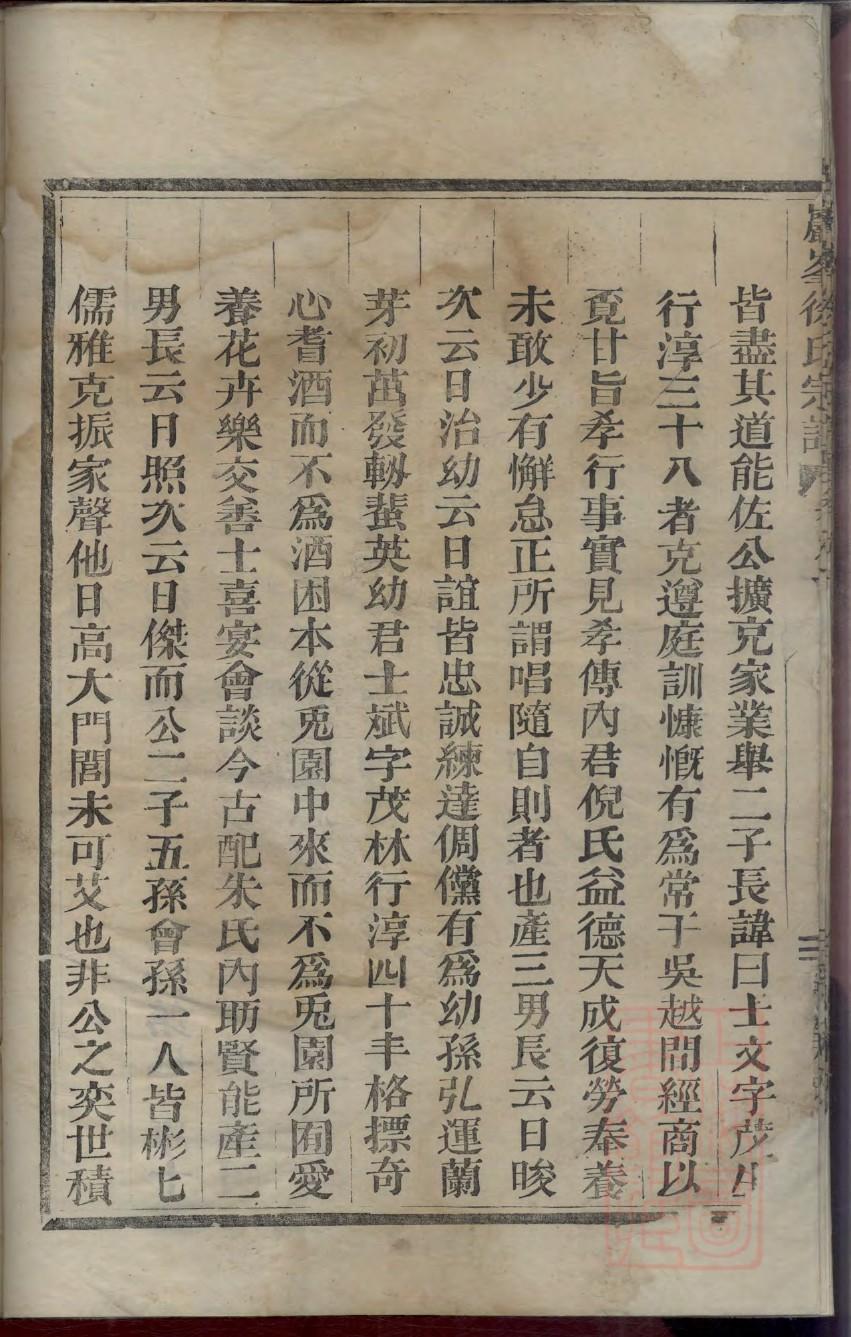 皆盡其道能佐公擴克家業舉二子長諱曰士文字茂
行淳三十八者克遵庭訓慷慨有爲常于吳越間經商以
覔甘旨孝行事實見孝傳內君倪氏益德天成復勞奉養
未敢少有懈怠正所謂唱隨自則者也產三男長云日晙
次云日治幼云日誼皆忠誠練達倜儻有爲幼孫弘運蘭
芽初茁發軔蜚英幼君士斌字茂林行淳四十丰格摽奇
心耆酒而不爲酒困本從兎園中來而不爲兎園所囿愛
養花卉樂交善士喜宴會談今古配朱氏內助賢能產二
男長云日照次云日傑而公二子五孫會孫一人皆彬七
儒雅克振家聲他日高大門閭未可艾也非公之奕世積
徐氏宗譜